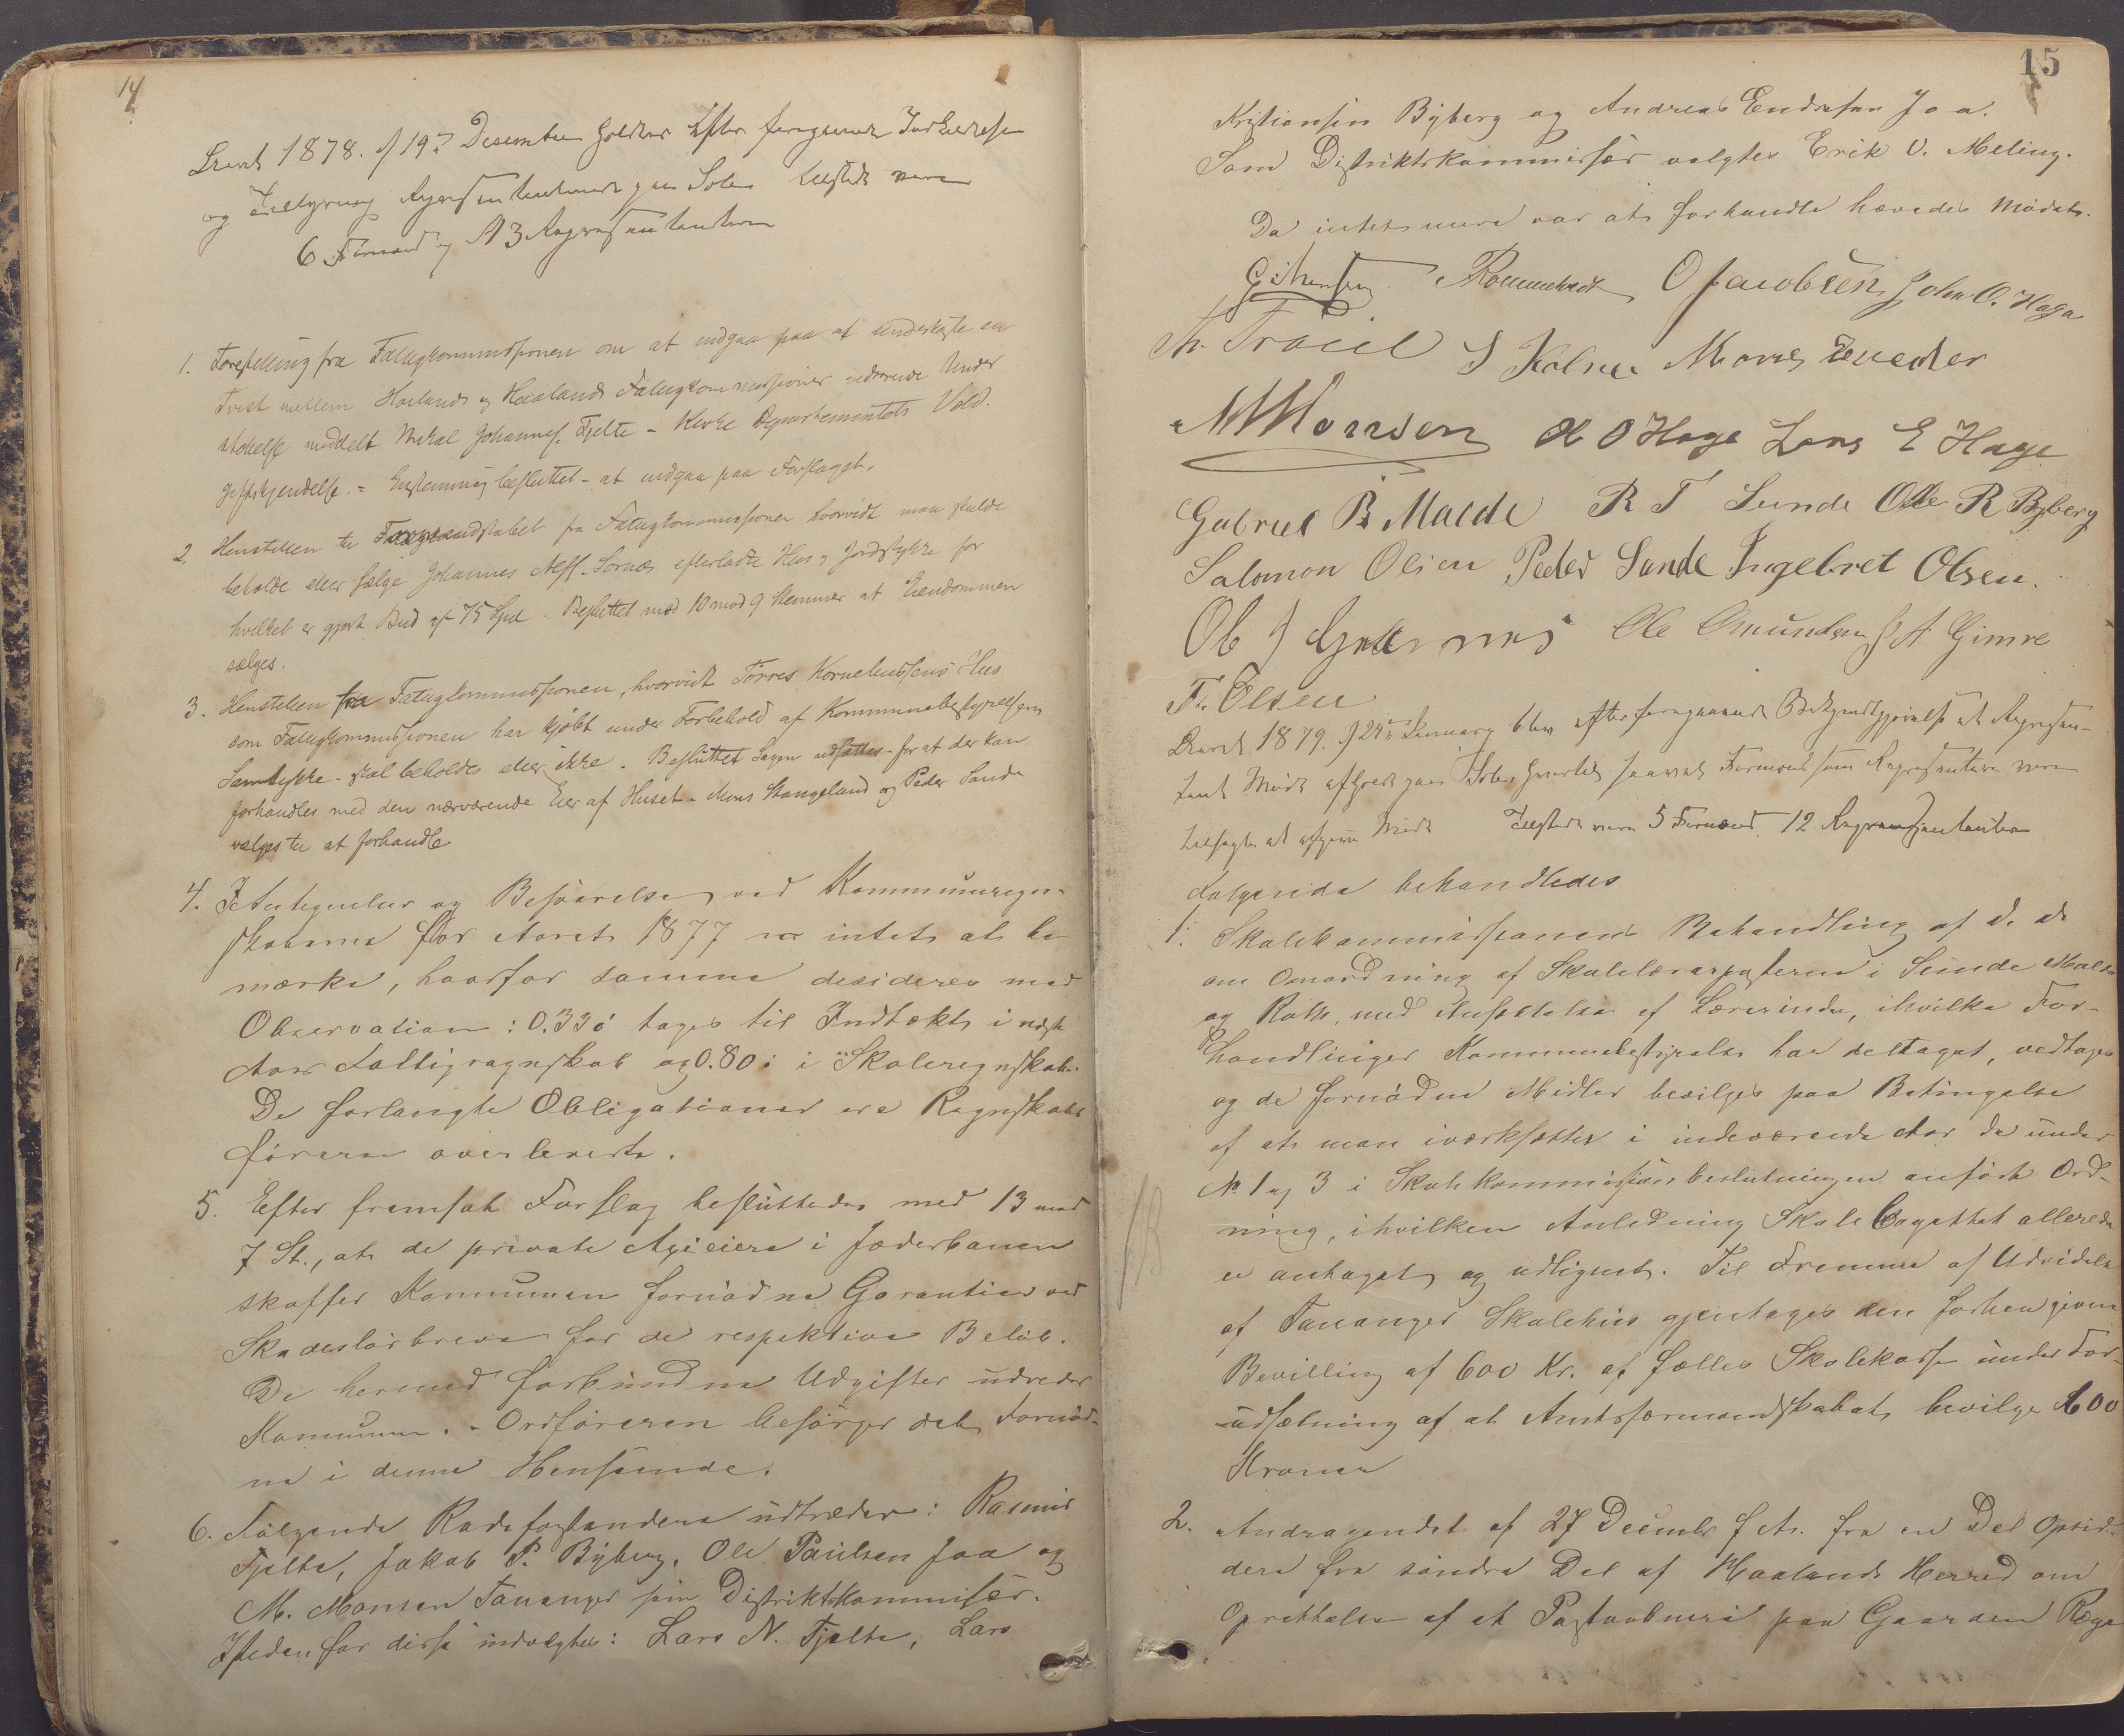 14
Aaret 1878. d 19de Desember holdtes Efter foregaaende Indkaldelse
og Tillysning Repræsentantmøde paa Sole tilstede vare
6 Formænd og 13 Repræsentantere
1. Forestilling fra Fattigkommissionen om at indgaa paa at underkaste en
Tvist mellem Haalands og Fattigkommissioner vedrørende Under
støttelse meddelt Mikal Johannes. Tjelte - Kirke Departementets Vold-
giftskjendelse. = Enstemmig besluttet - at indgaa paa Forslaget.
2. Henstillen til Formandskabet fra Fattigkommissionen hvorvidt man skulde
beholde eller sælge Johannes efterladte Hus og Jordstykke for
hvilket er gjort Bud af 75 Spd - Besluttet med 10 mod 9 Stemmer at Eiendommen
sælges.
3. Henstillen fra Fattigkommissionen, hvorvidt Tørres Korneliussens Hus
som Fattigkommissionen har kjøbt under Forbehold af Kommunebestyrelsens
Samtykke - skal beholdes eller ikke. Besluttet Sagen udsættes - for at der kan
forhandles med den nærværende Eier af Huset. Mons Stangeland og Peder Sande
valgtes til at forhandle
4. I Antegnelser og Besvarelse ved Kommuneregn-
skaberne for Aaret 1877 var intet at be
mærke, hvorfor samme desideres med
Observation: 0.33 tages til Indtækt i næste
Aars Fattigregnskab og 0.80 i Skoleregnskab.
De forlangte Obligationer ere Regnskabs
føreren overleverte.
5. Efter fremsat Forslag besluttedes med 13 mod
7 St., at de private Aktieeiere i Jæderbanen
skaffer Kommunen fornødne Garantier ved
Skadesløsbreve for de respektive Beløb.
De hermed forbundne Udgifter udreder
Kommunen. - Ordføreren besørger det Fornød-
ne i denne Henseende.
6. Følgende Rodeforstandere udtræder: Rasmus
Tjelta, Jakob P. Byberg, Ole Paulsen Joa og
M. Monsen Tananger som Distriktskommisær.
Isteden for disse indvalgtes: Lars N. Tjelta, Lars
15
Kristiansen Byberg og Andreas Endresen Joa.
Som Distriktskommisær valgtes Erik O. Meling.
Da intet mere var at forhandle hævedes Mødet.
Rommetvedt O Jacobsen John O. Haga
S Kolnes Mons
M Monsen Ole O Haga Lars E Hage
Gabriel B Malde R T Sunde Olle R Byberg
Salomon Olsen Peder Sande Ingebret Olsen.
Ole J Ole Omundsen J A Gimre
T. Olsen
Aaret 1879. d 24de January blev efter foregaaende Bekjendtgjørelse et Repræsen-
tant Møde afholdt paa Sole, hvortil saavel Formænd som Repræsentantere vare
tilsagte at afgive Møde Tilstede vare 5 Formænd 12 Repræsentanter
Følgende behandledes
1. Skolekommissionens Behandling af d. A
om Omordning af Skolelærerposterne i Sunde Malde
og Roth, med Ansættelse af Lærerinde, ihvilke For-
handlinger Kommunebestyrelse har deltaget, vedtages
og de fornødne Midler bevilges paa Betingelse
af at man iværksætter i indeværende Aar de under
No 1 og 3 i Skolekommissionsbeslutningen anførte Ord-
ning, ihvilken Anledning Skolebudgettet allerede
er antaget og udlignet. Til Fremme af Udvidelse
af Tananger Skolehus gjentages den forhen givne
Bevilling af 600 Kr. af fælles Skolekasse under For-
udsætning af at Amtsformandskabet bevilge 600
Kroner
2. Andragendet af 27 December f. A. fra en Del Opsid-
dere fra søndre Del af Haalands Herred om
Oprettelse af et Postaabneri paa Gaarden Rege